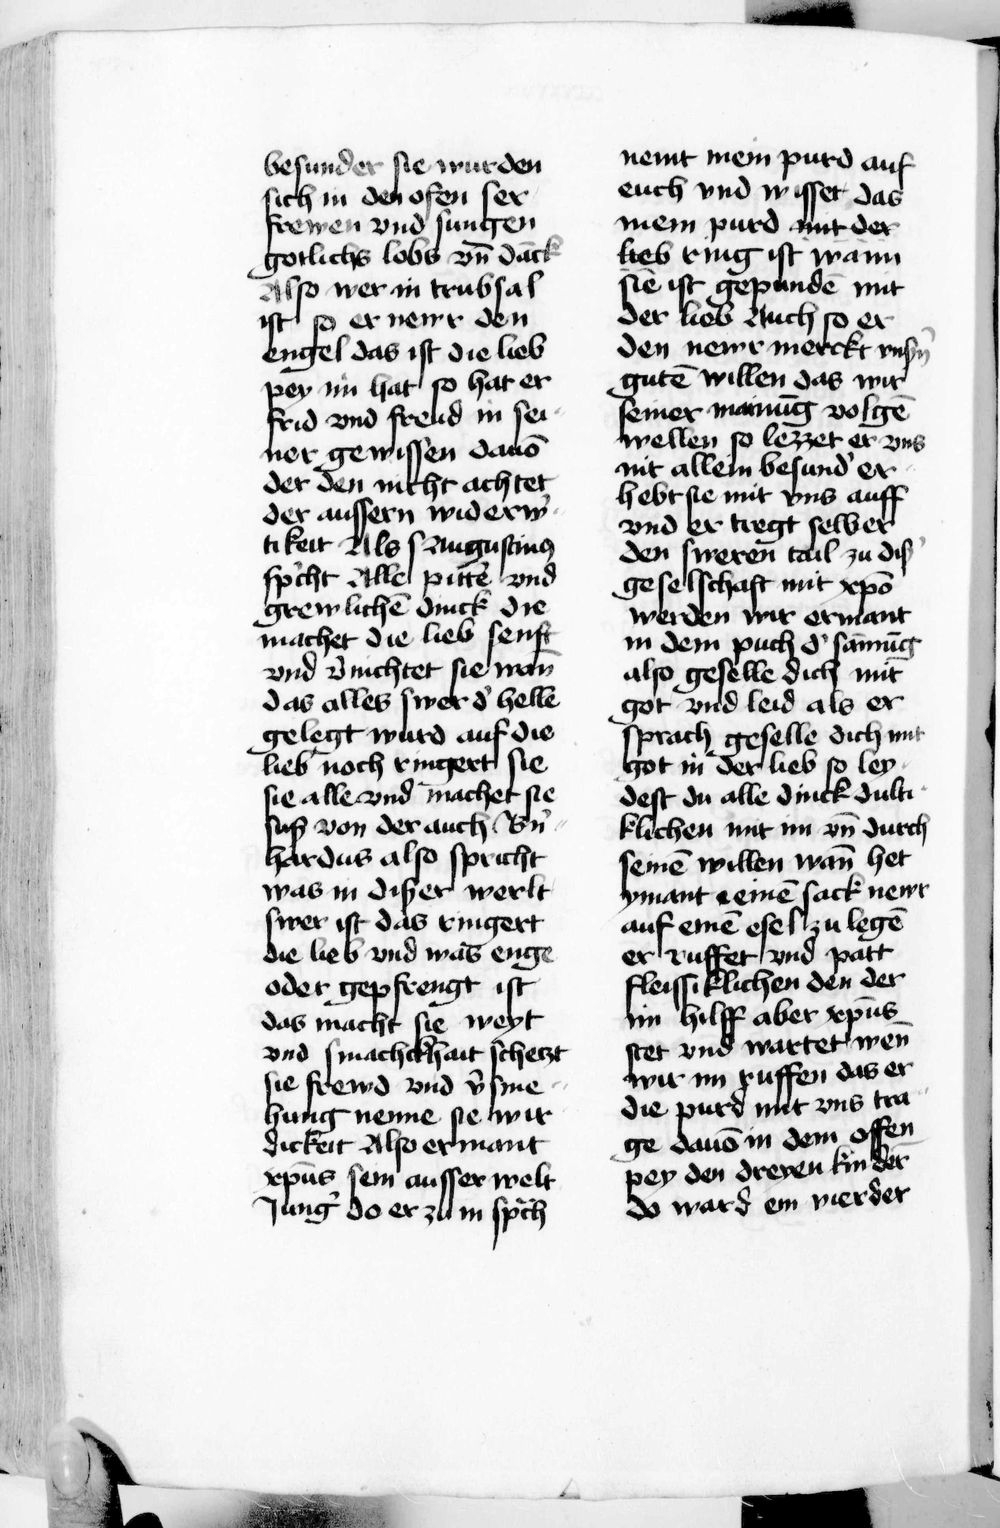 besunder sie wurden
sich in den ofen ser
frewen vnd sungen
gotlichs lobs vn̄ danck
Also wer in trubsal
ist so er newr den
engel das ist die lieb
pey im hat so hat er
frid vnd freud in sei-
ner gewissen dauō
der den nicht achtet
der aussern widerw̉-
tikeit Als s Augustinus
sp̉cht Alle pittē vnd
grewlichē dinck die
machet die lieb senft
vnd v̉nichtet sie wan̄
das alles swer d̉ helle
gelegt wurd auf die
lieb noch ringert sie
sie alle vnd machet sie
suß von der auch Bn̉-
hardus also spricht
was in dißer werlt
swer ist das ringert
die lieb vnd was enge
oder gepfrengt ist
das macht sie weyt
vnd smachckhait schetzt
sie frewd vnd v̉sme-
hung nenne sie wir-
dickeit Also ermant
xpūs sein ausser welt
Jung̉ do er zu in sp̉ch
nemt mein purd auf
euch vnd wisset das
mein purd mit der
lieb ring ist wann
sie ist gepundē mit
der lieb Auch so er
den newr merckt vnsn̉
gutē willen das wir
seiner mainūg volgē
wellen so lezzet er vns
nit allein besund̉ er-
hebt sie mit vns auff
vnd er tregt selber
den sweren tail zu diß̉
geselschaft mit xpō
werden wir ermant
in dem puch d̉ samūg
also geselle dich mit
got vnd leid als er
sprach geselle dich mit
got in der lieb so ley-
dest du alle dinck dulti-
klichen mit im vn̄ durch
seinē willen wan̄ het
ymant einē sack newr
auf einē esel zu legē
er ruffet vnd patt
fleissiklichen den der
im hilff aber xpūs
stet vnd wartet wen̄
wir im ruffen das er
die purd mit vns tra-
ge dauō in dem offen
pey den dreyen kinder
do ward ein vierder